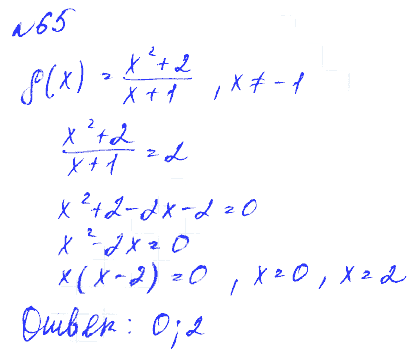 №65
f(x) = (x²+2)/(x+1) , x ≠ -1
(x²+2)/(x+1) = 2
x²+2-2x-2=0
x²-2x=0
x(x-2)=0 , x=0, x=2
Ответ: 0; 2